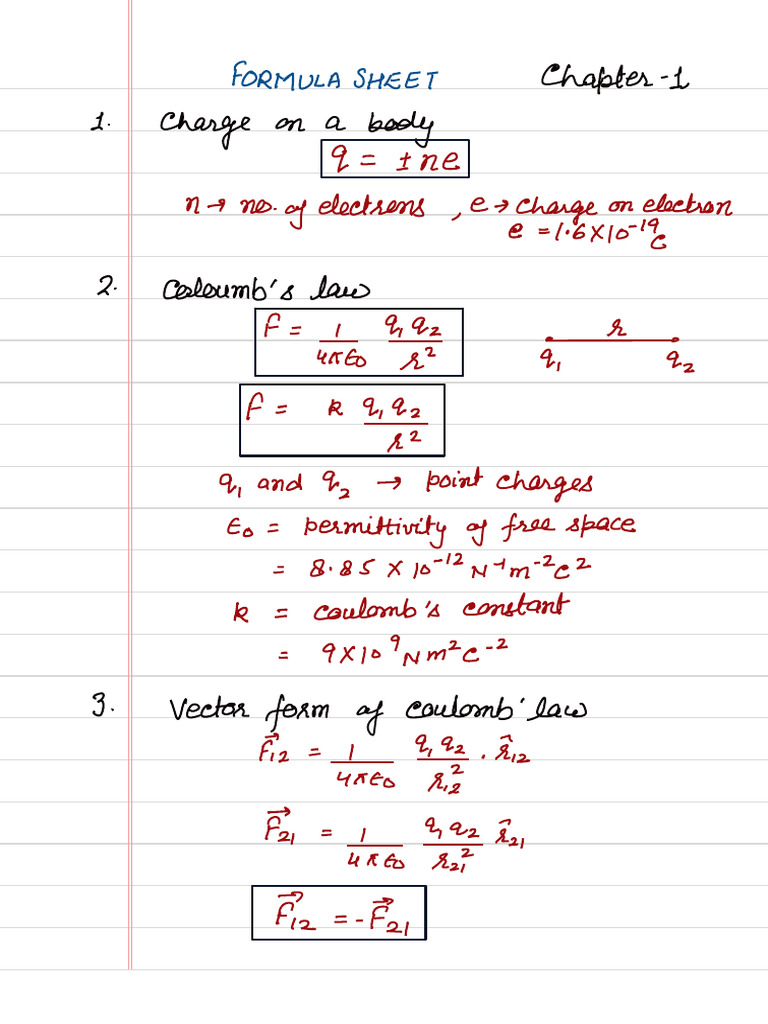 FORMULA SHEET Chapter-1
1. Charge on a body
q = ±ne
n → no. of electrons , e → charge on electron
e = 1.6×10⁻¹⁹C
2. Coloumb's law
F = 1/4πε0 q₁q₂/r²
r
q₁ q₂
F = k q₁q₂/r²
q₁ and q₂ → point charges
ε0 = permittivity of free space
= 8.85 × 10⁻¹² N⁻¹m⁻²C²
k = coulomb's constant
= 9×10⁹ Nm²C⁻²
3. Vector form of coulomb' law
F⃗₁₂ = 1/4πε0 q₁q₂/r₁₂² . r̂₁₂
F⃗₂₁ = 1/4πε0 q₁q₂/r₂₁² r̂₂₁
F⃗₁₂ = -F⃗₂₁